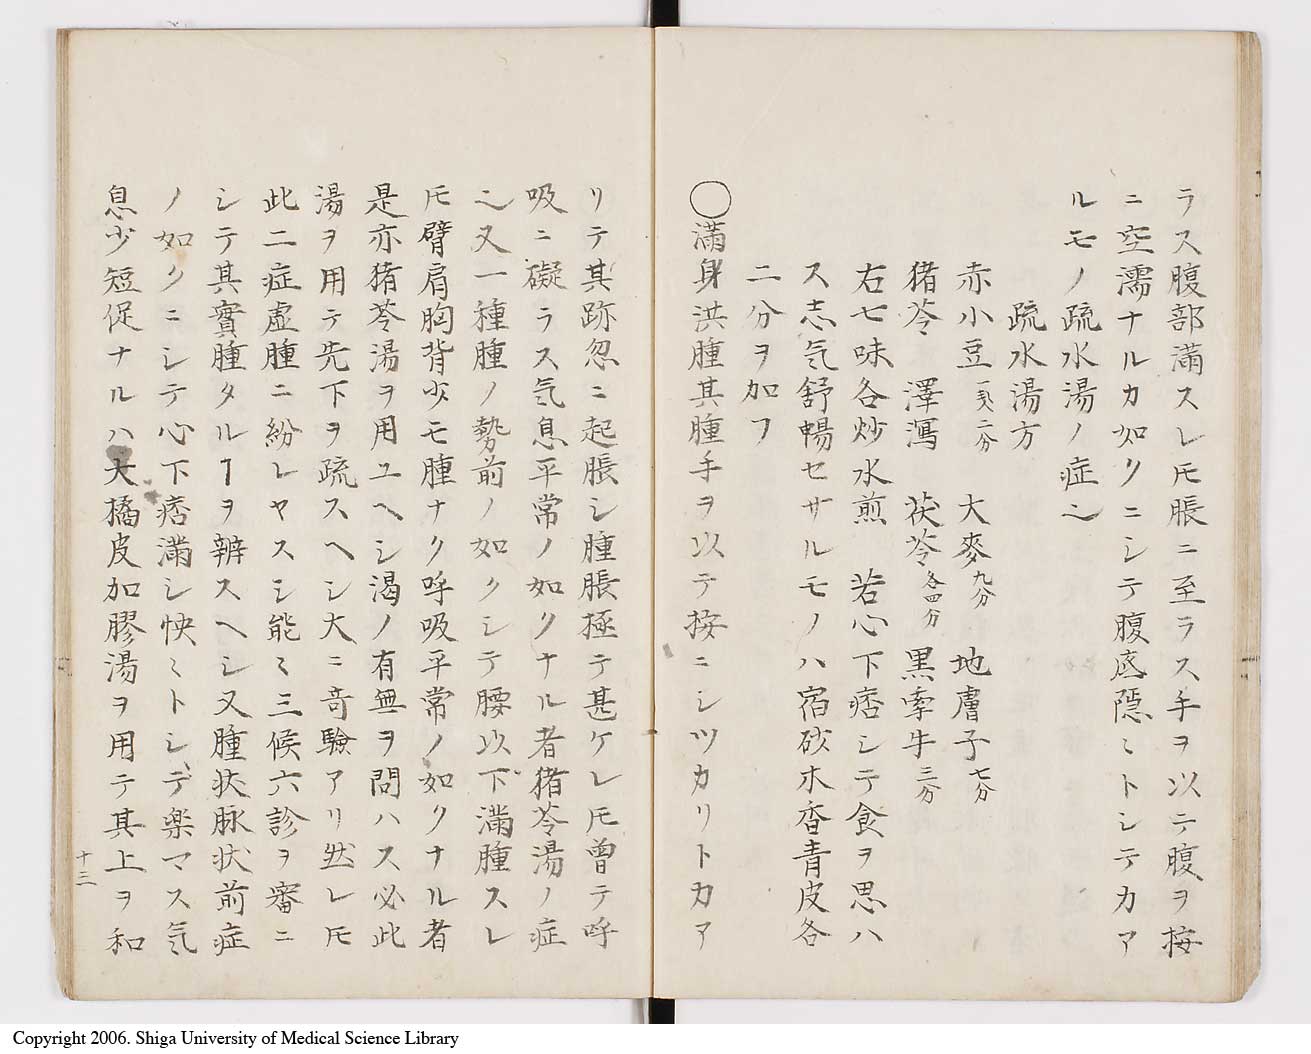 ラス腹部滿スレ𪜈脹ニ至ラス手ヲ以テ腹ヲ按
ニ空濡ナルカ如クニシテ腹底隠ミトシテカア
ルモノ疏水湯ノ症也
疏水湯方
赤小豆一匁二分 大麥九分 地膚子七分
猪苓 澤瀉 茯苓各四分 黒牽牛三分
右七味各炒水煎 若心下痞シテ食ヲ思ハ
ス志気舒暢セサルモノハ宿砂木香青皮各
二分ヲ加フ
○滿身洪腫其腫手ヲ以テ按ニシツカリトカア
リテ其跡忽ニ起脹シ腫脹極テ甚ケレ𪜈曽テ呼
吸ニ礙ラス気息平常ノ如クナル者猪苓湯ノ症
也又一種腫ノ勢前ノ如クシテ腰以下滿腫スレ
𪜈臂肩胸背少モ腫ナク呼吸平常ノ如クナル者
是亦猪苓湯ヲ用ユヘシ渇ノ有無ヲ問ハス必此
湯ヲ用テ先下ヲ疏スヘシ大ニ奇驗アリ然レ𪜈
此二症虚腫ニ紛レヤスシ能ミ三候六診ヲ審ニ
シテ其實腫タルヿヲ辨スヘシ又腫状脉状前症
ノ如クニシテ心下痞滿シ怏ミトシテ楽マス気
息少短促ナルハ大橘皮加膠湯ヲ用テ其上ヲ和
十三
Copyright 2006. Shiga University of Medical Science Library